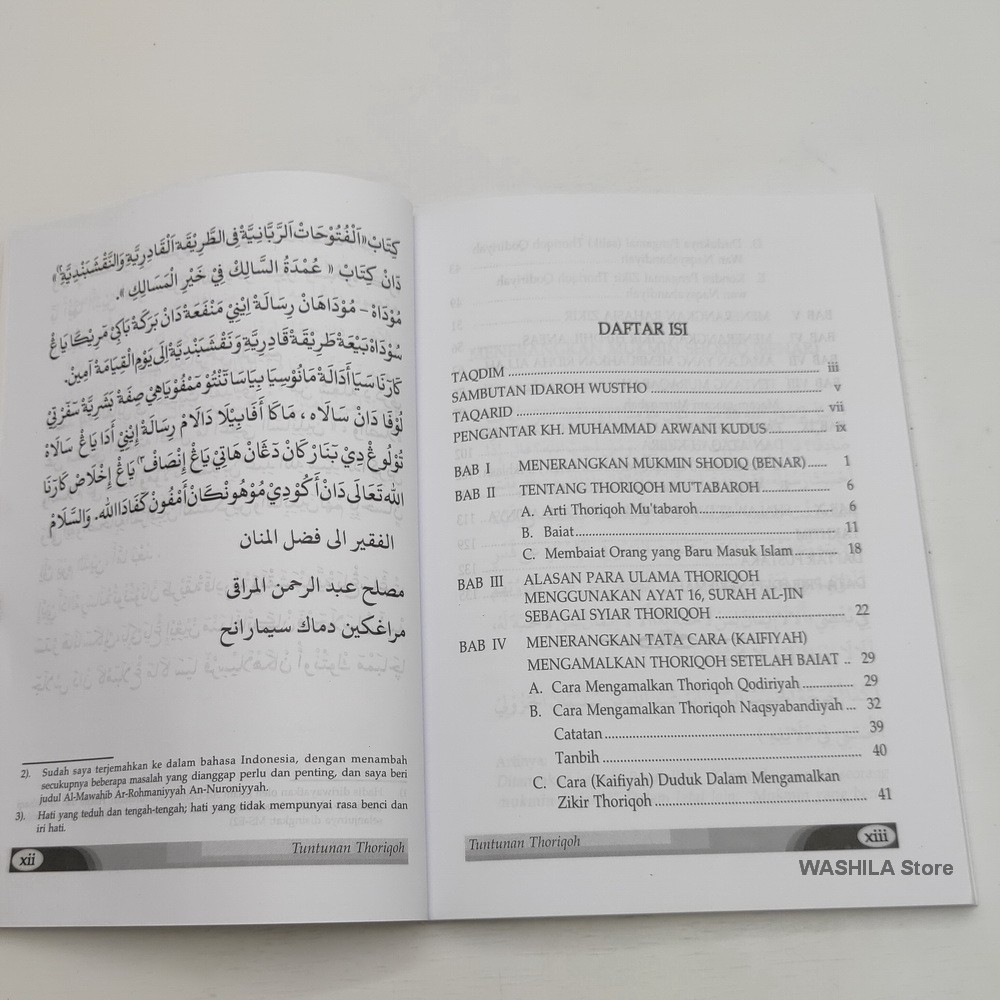 كِتَابْ «اَلْفُتُوْحَاتْ اَلرَّبَّانِيَّةْ فِى الطَّرِيْقَةِ اَلْقَادِرِيَّةِ وَالنَّقْشَبَنْدِيَّةِ»
دَانْ كِتَابْ «عُمْدَةُ السَّالِكْ فِيْ خَيْرِ الْمَسَالِكِ».
مُوْدَاهْ – مُوْدَاهَانْ رِسَالَةْ اِيْنِيْ مَنْفَعَةْ دَانْ بَرَكَةْ بَاكِيْ مَرَيْكَا يَاڠْ
سُوْدَاهْ بَيْعَةْ طَرِيْقَةْ قَادِرِيَّةْ وَنَقْشَبَنْدِيَّةْ اِلَى يَوْمِ الْقِيَامَةْ اَمِيْنْ.
كَارَنَا سَيَا اَدَالَهْ مَانُوْسِيَا بِيَاسَا تَنْتُوْ مَمْفُوْيَاهِيْ صِفَةْ بَشَرِيَّةْ سَفَرْتِيْ
لُوْفَا دَانْ سَالَاه ، مَاكَا اَفَابِيْلَا دَالَامْ رِسَالَةْ اِيْنِيْ اَدَا يَاڠْ سَالَاهْ
تُوْلُوْڠْ دِيْ بَنَارْكَانْ دَڠَانْ هَاتِيْ يَاڠْ اِنْصَافْ ³⁾ يَاڠْ اِخْلَاصْ كَارَنَا
اللّٰه تَعَالَى دَانْ اَكُوْ دِيْ مُوْهُوْنْكَانْ اَمْفُوْنْ كَفَادَا اللّٰه. وَالسَّلَامْ
الفقير الى فضل المنان
مصلح عبد الرحمن المراقى
مراغكين دماك سيمارانح
2). Sudah saya terjemahkan ke dalam bahasa Indonesia, dengan menambah
secukupnya beberapa masalah yang dianggap perlu dan penting, dan saya beri
judul Al-Mawahib Ar-Rohmaniyyah An-Nuroniyyah.
3). Hati yang teduh dan tengah-tengah; hati yang tidak mempunyai rasa benci dan
iri hati.
xii Tuntunan Thoriqoh
DAFTAR ISI
TAQDIM ........ iii
SAMBUTAN IDAROH WUSTHO ........ v
TAQARID ........ vii
PENGANTAR KH. MUHAMMAD ARWANI KUDUS ........ ix
BAB I MENERANGKAN MUKMIN SHODIQ (BENAR) ...... 1
BAB II TENTANG THORIQOH MU'TABAROH ........ 6
A. Arti Thoriqoh Mu'tabaroh ........ 6
B. Baiat ........ 11
C. Membaiat Orang yang Baru Masuk Islam ........ 18
BAB III ALASAN PARA ULAMA THORIQOH
MENGGUNAKAN AYAT 16, SURAH AL-JIN
SEBAGAI SYIAR THORIQOH ........ 22
BAB IV MENERANGKAN TATA CARA (KAIFIYAH)
MENGAMALKAN THORIQOH SETELAH BAIAT .. 29
A. Cara Mengamalkan Thoriqoh Qodiriyah ........ 29
B. Cara Mengamalkan Thoriqoh Naqsyabandiyah ... 32
Catatan ........ 39
Tanbih ........ 40
C. Cara (Kaifiyah) Duduk Dalam Mengamalkan
Zikir Thoriqoh ........ 41
Tuntunan Thoriqoh xiii
WASHILA Store